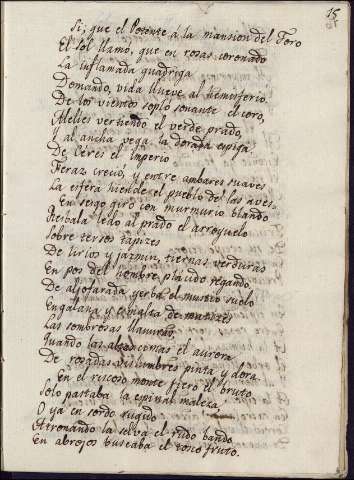 15
Si; que el Potente á la mansion del Toro
El Sol llamó, que en rosas coronado
La inflamada quadriga
Domando, vida llueve al hemisferio.
De los vientos sopló sonante el coro,
Alelies vertiendo el verde prado,
Y al ancha vega la dorada espiga,
De Ceres el imperio
Feraz creció, y entre ambares suaves
La esfera hiende el pueblo de las aves.
En sesgo giro con murmurio blando
Resbala ledo al prado el arroyuelo
Sobre tersos tapizes
De lirios y jazmin, tiernas verduras
En pos del placido regando.
De aljofarada yerba el mustio suelo
Engalana y esmalta de matizes
Las sombrosas llanuras,
Quando las altas cimas el aurora
De rosadas vislumbres pinta y dora.
En el riscoso monte fiero el bruto
Solo pastaba la espinal maleza
O ya en sordo rugido
Atronando la selva el rudo bando
En abrojos buscaba el tosco fruto.